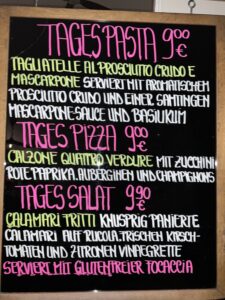 TAGES PASTA 9⁰⁰ €
TAGLIATELLE AL PROSCIUTTO CRUDO E
MASCARPONE SERVIERT MIT AROMATISCHEM
PROSCIUTTO CRUDO UND EINER SAMTINGEN
MASCARPONE SAUCE UND BASILIKUM
TAGES PIZZA 9⁰⁰ €
CALZONE QUATTRO VERDURE MIT ZUCCHINI
ROTE PAPRIKA, AUBERGINEN UND CHAMPIGNONS
TAGES SALAT 9⁹⁰ €
CALAMARI TRITTI KNUSPRIG PANIERTE
CALAMARI AUF RUCOLA, FRISCHEN KIRSCH-
TOMATEN UND ZITRONEN VINAIGRETTE
SERVIERT MIT GLUTENFREIER FOCACCIA